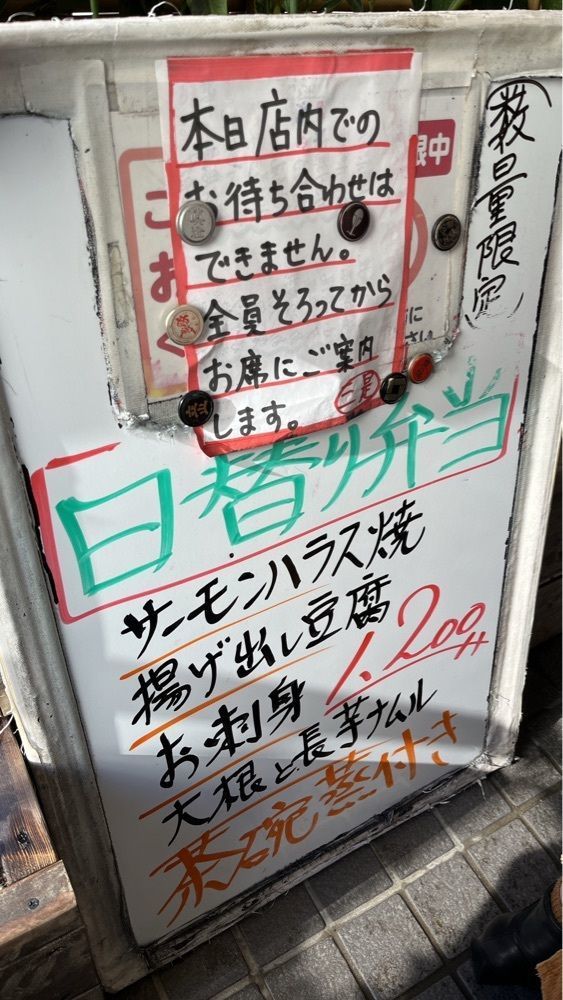 本日店内での
お待ち合わせは
できません。
全員そろってから
お席にご案内
します。
限中
(数量限定)
日替り弁当
サーモンハラス焼
揚げ出し豆腐
1,200円
お刺身
大根と長芋ナムル
茶碗蒸付き